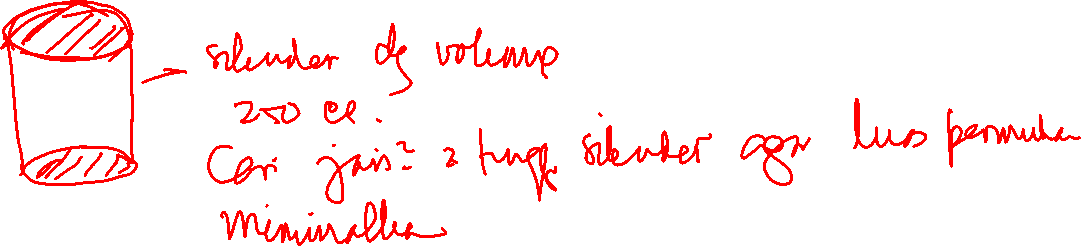 silender dg volume
250 cc.
Cari jari² & tinggi silender agar luas permukaan
minimalkan